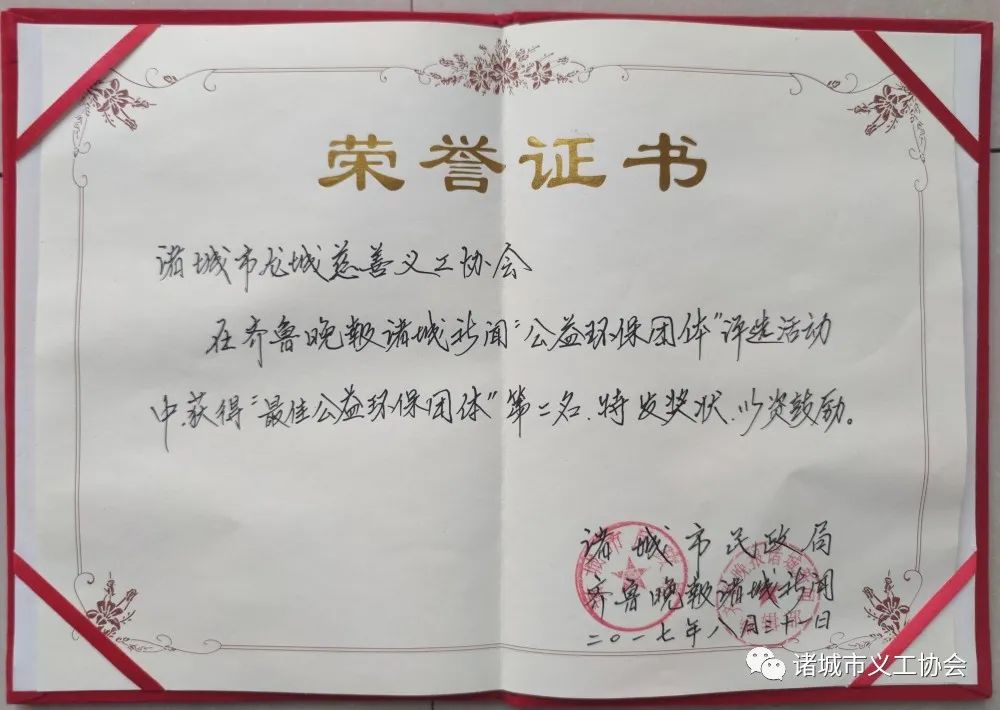 荣誉证书
诸城市龙城慈善义工协会
在齐鲁晚报诸城新闻"公益环保团体"评选活动
中.获得"最佳公益环保团体"第二名.特发奖状.以资鼓励。
诸城市民政局
齐鲁晚报诸城新闻
二〇一七年八月三十一日
诸城市义工协会